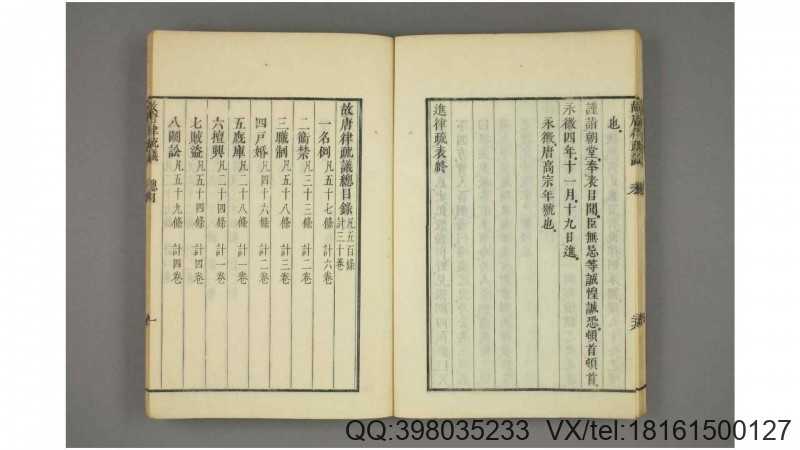 也
謹詣朝堂奉表以聞臣無忌等誠惶誠恐頓首頓首
永徽四年十一月十九日進
永徽唐高宗年號也
進律疏表終
故唐律疏議總目錄 凡五百條 計三十卷
一名例 凡五十七條 計六卷
二衛禁 凡三十三條 計二卷
三職制 凡五十八條 計三卷
四戶婚 凡四十六條 計二卷
五廄庫 凡二十八條 計一卷
六擅興 凡二十四條 計一卷
七賊盜 凡五十四條 計四卷
八鬭訟 凡五十九條 計四卷
QQ:398035233 VX/tel:18161500127